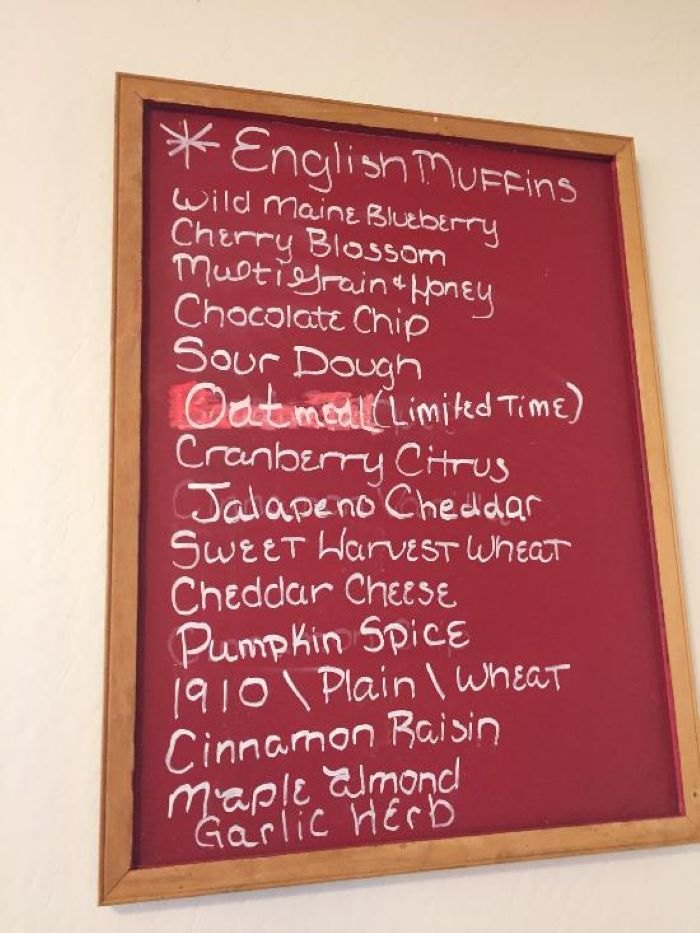 * English Muffins
Wild Maine Blueberry
Cherry Blossom
Multi Grain & Honey
Chocolate Chip
Sour Dough
Oatmeal (Limited Time)
Cranberry Citrus
Jalapeno Cheddar
Sweet Harvest Wheat
Cheddar Cheese
Pumpkin Spice
1910 \ Plain \ Wheat
Cinnamon Raisin
Maple almond
Garlic Herb